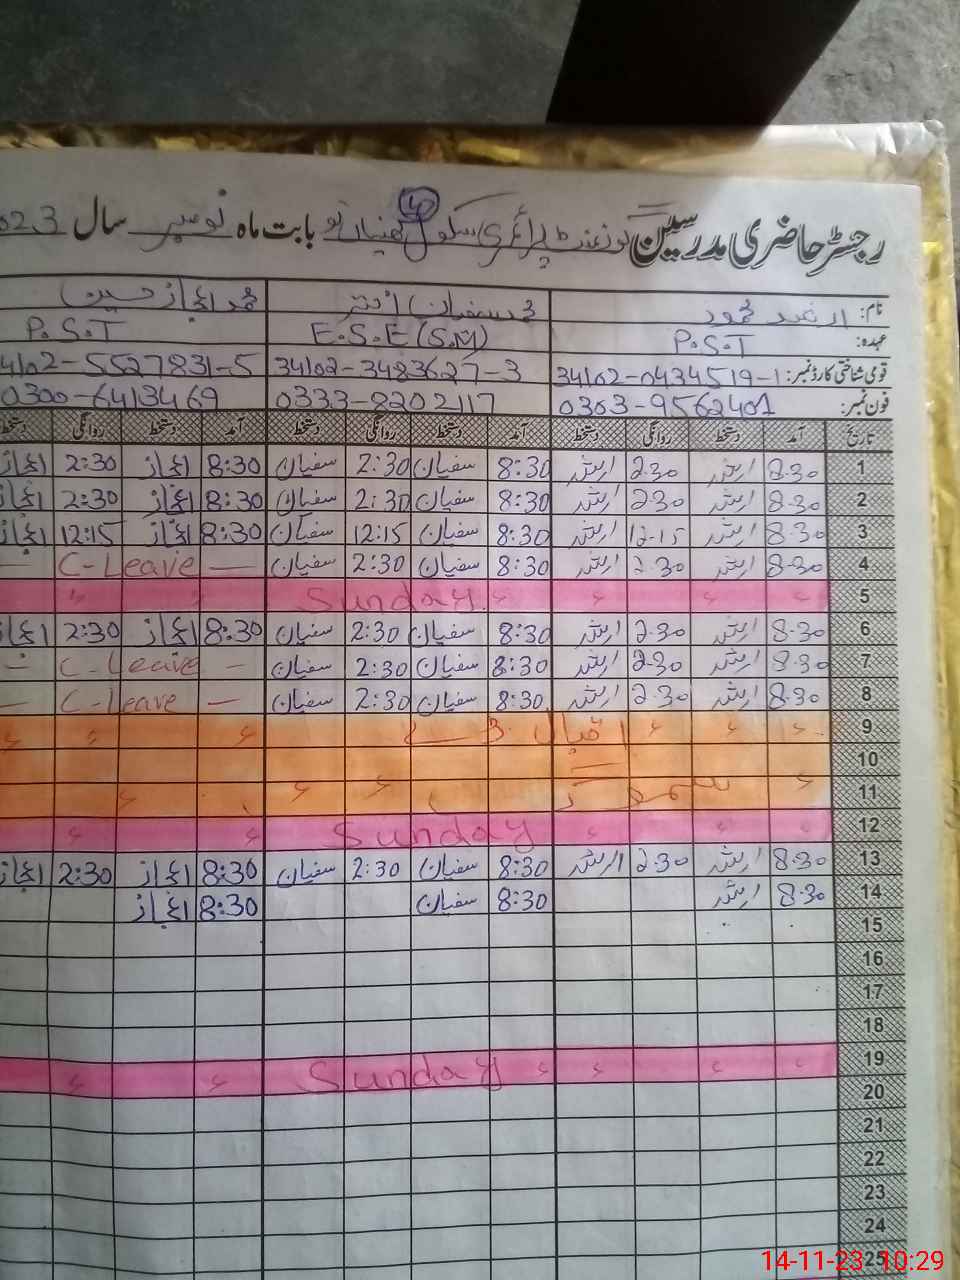 رجسٹر حاضری مدرسین گورنمنٹ پرائمری سکول بابت ماہ نومبر سال 2023
نام: ارشد محمود محمد سفیان اختر محمد اعجاز حسین
عہدہ: P.S.T E.S.E (S.M) P.S.T
قومی شناختی کارڈ نمبر: 34102-0434519-1 34102-3483627-3 34102-5527831-5
فون نمبر: 0303-9562401 0333-8202117 0300-6413469
تاریخ آمد دستخط روانگی دستخط آمد دستخط روانگی دستخط آمد دستخط روانگی دستخط
1 8:30 ارشد 2:30 ارشد 8:30 سفیان 2:30 سفیان 8:30 اعجاز 2:30 اعجاز
2 8:30 ارشد 2:30 ارشد 8:30 سفیان 2:30 سفیان 8:30 اعجاز 2:30 اعجاز
3 8:30 ارشد 12-15 ارشد 8:30 سفیان 12:15 سفیان 8:30 اعجاز 12:15 اعجاز
4 8:30 ارشد 2:30 ارشد 8:30 سفیان 2:30 سفیان — C-Leave —
5 Sunday
6 8:30 ارشد 2:30 ارشد 8:30 سفیان 2:30 سفیان 8:30 اعجاز 2:30 اعجاز
7 8:30 ارشد 2:30 ارشد 8:30 سفیان 2:30 سفیان — C-Leave —
8 8:30 ارشد 2:30 ارشد 8:30 سفیان 2:30 سفیان — C-Leave —
9 اقبال ڈے
10
11
12 Sunday
13 8:30 ارشد 2:30 ارشد 8:30 سفیان 2:30 سفیان 8:30 اعجاز 2:30 اعجاز
14 8:30 ارشد 8:30 سفیان 8:30 اعجاز
15
16
17
18
19 Sunday
20
21
22
23
24
25
14-11-23 10:29